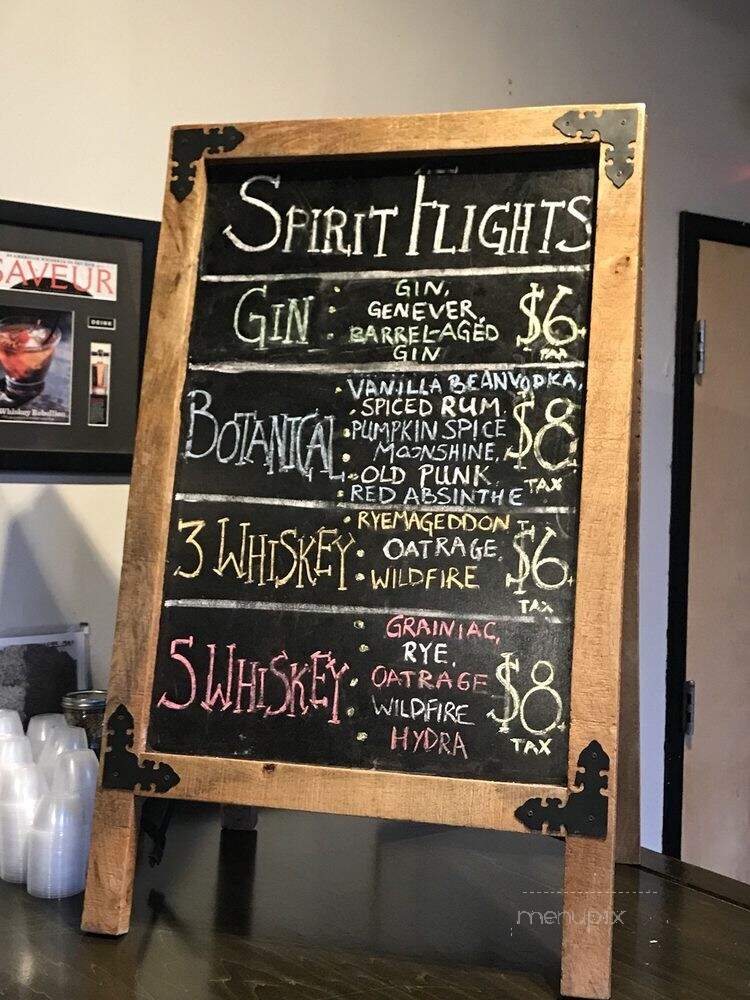 SAVEUR
DRINK
Whiskey Rebellion
SPIRIT FLIGHTS
GIN
GIN,
GENEVER,
BARREL-AGED
GIN
$6+
TAX
BOTANICAL
VANILLA BEAN VODKA,
SPICED RUM,
PUMPKIN SPICE
MOONSHINE,
OLD PUNK,
RED ABSINTHE
$8+
TAX
3 WHISKEY
RYEMAGEDDON,
OATRAGE,
WILDFIRE
$6+
TAX
5 WHISKEY
GRAINIAC,
RYE,
OATRAGE
WILDFIRE
HYDRA
$8+
TAX
menupix